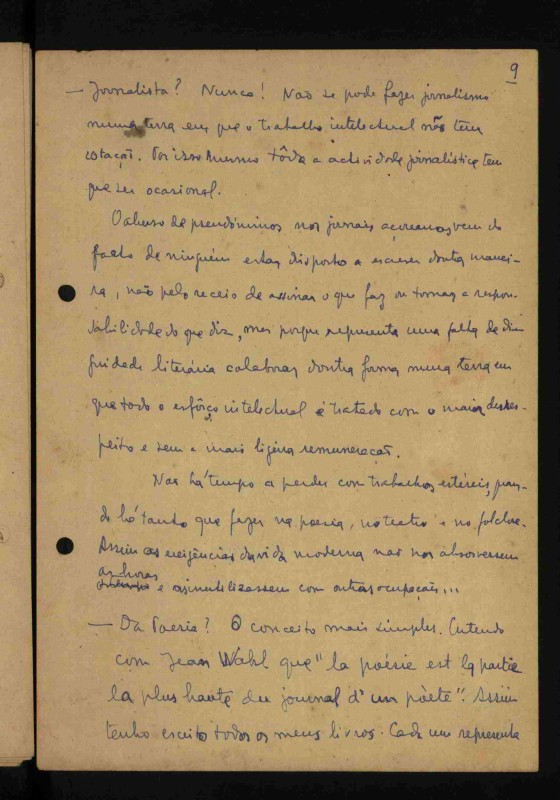 9
— Jornalista? Nunca! Não se pode fazer jornalismo
numa terra em que o trabalho intelectual não tem
cotação. Por isso mesmo tôda a actividade jornalística tem
que ser ocasional.
O abuso de pseudónimos nos jornais açoreanos vem do
facto de ninguém estar disposto a escrever doutra manei-
ra, não pelo receio de assinar o que faz ou tomar a respon-
sabilidade do que diz, mas porque representa uma falta de di-
gnidade literária colaborar doutra forma numa terra em
que todo o esfôrço intelectual é tratado com o maior desres-
peito e sem a mais ligeira remuneração.
Não há tempo a perder com trabalhos estéreis, quan-
do há tanto que fazer na poesia, no teatro e no folclore.
Assim as exigências da vida moderna não nos absorvessem
as horas
e as inutilizassem com outras ocupações...
— Da Poesia? O conceito mais simples. Entendo
com Jean Wahl que "la poésie est la partie
la plus haute du journal d'un poète". Assim
tenho escrito todos os meus livros. Cada um representa